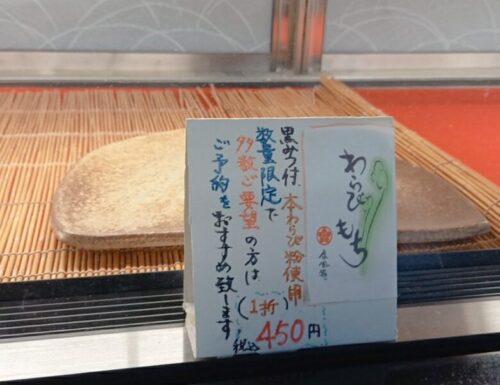 わらびもち
黒みつ付、本わらび粉使用
数量限定で
多数ご要望の方は
ご予約をおすすめ致します
(1折)
税込450円